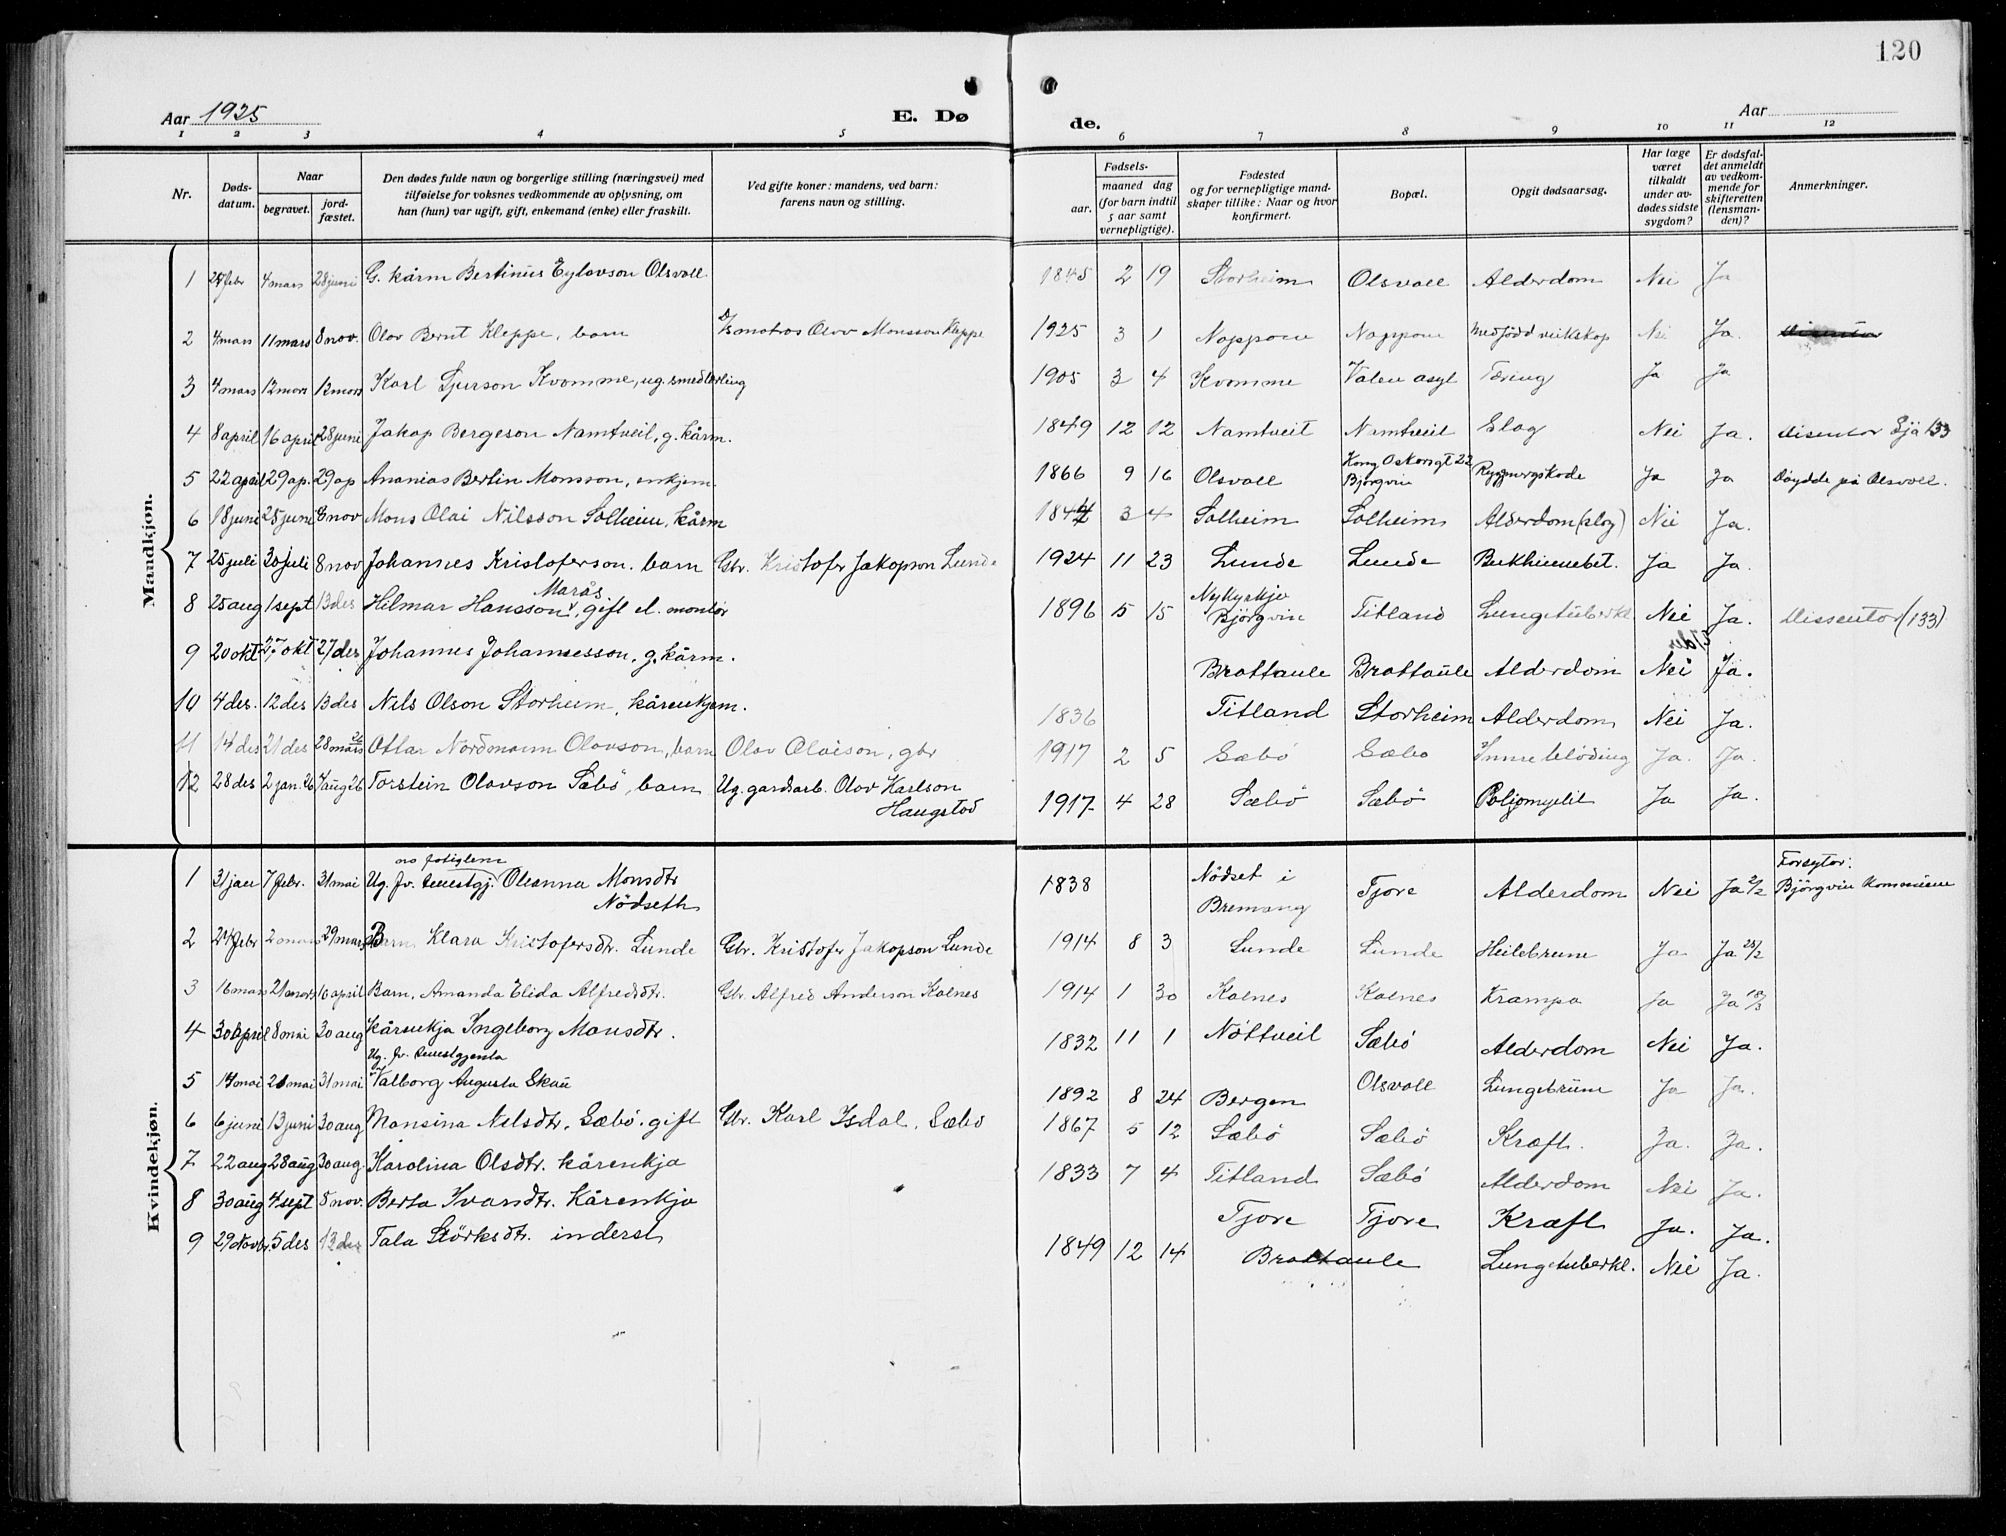 120
Aar 1925
E. Dø
de.
Aar
1 2 3 4 5 6 7 8 9 10 11 12
Nr.
Døds-
datum.
Naar
begravet.
jord-
fæstet.
Den dødes fulde navn og borgerlige stilling (næringsvei) med
tilføielse for voksnes vedkommende av oplysning, om
han (hun) var ugift, gift, enkemand (enke) eller fraskilt.
Ved gifte koner: mandens, ved barn:
farens navn og stilling.
Fødsels-
aar.
maaned dag
(for barn indtil
5 aar samt
vernepligtige).
Fødested
og for vernepligtige mand-
skaper tillike: Naar og hvor
konfirmert.
Bopæl.
Opgit dødsaarsag.
Har læge
været
tilkaldt
under av-
dødes sidste
sygdom?
Er dødsfal-
det anmeldt
av vedkom-
mende for
skifteretten
(lensman-
den)?
Anmerkninger.
Mandkjøn.
1 febr 4 mars 28 juni G. kårm Bertinus Eylovson Olsvoll 1845 2 19 Storheim Olsvoll Alderdom Nei Ja
2 4 mars 11 mars 8 nov. Olav Bernt Kleppe, barn matros Olav Monsson Kleppe 1925 3 1 Nappen Nappen Medfødd Nei Ja.
3 4 mars 12 mars 12 mars Karl Sjurson Kvomme, ug. smedlærling 1905 3 4 Kvomme Valen asyl Tæring Ja Ja
4 8 april 16 april 28 juni Jakop Bergeson Namtveit, g. kårm. 1849 12 12 Namtveit Namtveit Slag Nei Ja. disentor Sjå 133
5 22 april 29 ap. 29 ap Ananias Bertin Monsson, enkjem. 1866 9 16 Olsvoll Kong Oskarsgt 22
Bjørgvin Ryggmergskade Ja Ja Døydde på Olsvoll.
6 18 juni 25 juni 8 nov Mons Olai Nilsson Solheim, kårm 1844 3 4 Solheim Solheim Alderdom (slag) Nei Ja.
7 25 juli 30 juli 8 nov Johannes Kristoferson. barn Gbr. Kristofer Jakopson Lunde 1924 11 23 Lunde Lunde Bukhinnebet. Ja Ja.
Marås
8 25 aug 1 sept 13 des Hilmar Hansson, gift el. montør 1896 5 15 Nykyrkje
Bjørgvin Titland Lungetuberkl Nei Ja. Dissentor (133)
9 20 okt 27 okt 27 des Johannes Johannesson, g. kårm. Brattaule Brattaule Alderdom Nei Ja.
10 4 des. 12 des 13 des Nils Olson Storheim, kårenkjem. 1836 Titland Storheim Alderdom Nei Ja.
11 14 des 21 des 28 mars 26 Ottar Nordmann Olavson, barn Olav Olaison, gbr 1917 2 5 Sæbø Sæbø Innre bløding Ja. Ja.
12 28 des 2 jan. 26 1 aug 26 Torstein Olavson Sæbø, barn Ug. gardsarb. Olav Karlson
Haugstad 1917 4 28 Sæbø Sæbø Poliomyelit Ja Ja.
Kvindekjøn.
1 31 jan 7 febr. 31 mai Ug. fv. tenestgj. Oleanna Monsdtr
Nødseth 1838 Nødset i
Bremang Tjore Alderdom Nei Ja 2/2 Forsytor:
Bjørgvin Kommune
2 24 febr 2 mars 29 mars Barn Klara Kristofersdtr. Lunde Gbr. Kristofer Jakopson Lunde 1914 8 3 Lunde Lunde Heilebrune Ja Ja 25/2
3 16 mars 21 mars 16 april Barn, Amanda Elida Alfredsdtr. Gbr. Alfred Anderson Kalnes 1914 1 30 Kalnes Kalnes Krampa Ja Ja 18/3
4 30 april 8 mai 30 aug Kårenkja Ingeborg Monsdtr. 1832 11 1 Nøttveit Sæbø Alderdom Nei Ja.
Ug. fv. tenestgjenta
5 14 mai 20 mai 31 mai Valborg Augusta Skau 1892 8 24 Bergen Olsvoll Lungebrune Ja Ja.
6 6 juni 13 juni 30 aug Monsina Nilsdtr. Sæbø. gift Gbr. Karl Isdal. Sæbø 1867 5 12 Sæbø Sæbø Kræft. Ja. Ja.
7 22 aug 28 aug 30 aug. Karolina Olsdtr. kårenkja 1833 7 4 Titland Sæbø Alderdom Nei Ja.
8 30 aug 4 sept 8 nov. Berta Ivarsdtr. Kårenkja Tjore Tjore Kræft Ja. Ja.
9 29 Novbr. 5 des 13 des Tala Størksdtr. inderst 1849 12 14 Brattaule Lungetuberkl. Nei Ja.